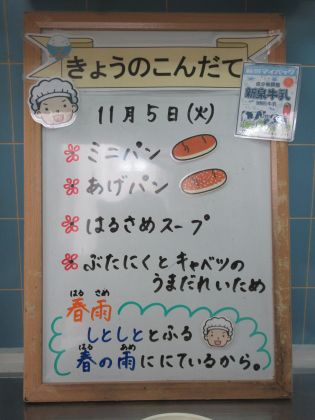 きょうのこんだて
11月5日(火)
ミニパン
あげパン
はるさめスープ
ぶたにくとキャベツの
うまだれいため
はる さめ
春雨
しとしととふる
はる あめ
春の雨ににているから。